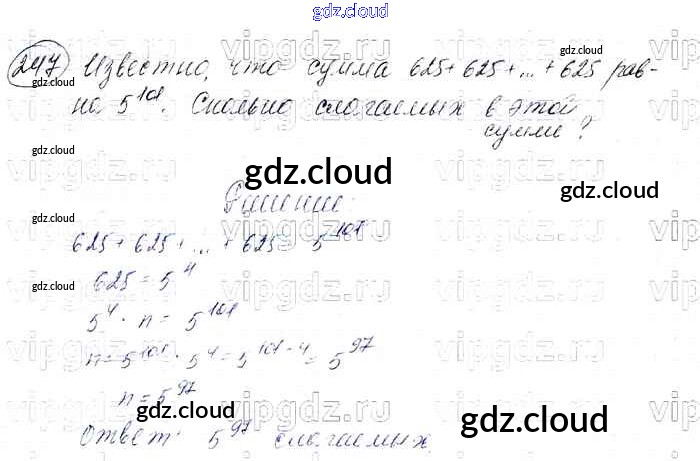 gdz.cloud
247 Известно, что сумма 625 + 625 + ... + 625 рав-
но 5^101. Сколько слагаемых в этой
сумме?
Решение:
625 + 625 + ... + 625 = 5^101
625 = 5^4
5^4 · n = 5^101
n = 5^101 : 5^4 = 5^101-4 = 5^97
n = 5^97
Ответ: 5^97 слагаемых.
gdz.cloud
gdz.cloud
gdz.cloud
gdz.cloud
gdz.cloud
gdz.cloud
gdz.cloud
gdz.cloud
gdz.cloud
gdz.cloud
gdz.cloud
vipgdz.ru
vipgdz.ru
vipgdz.ru